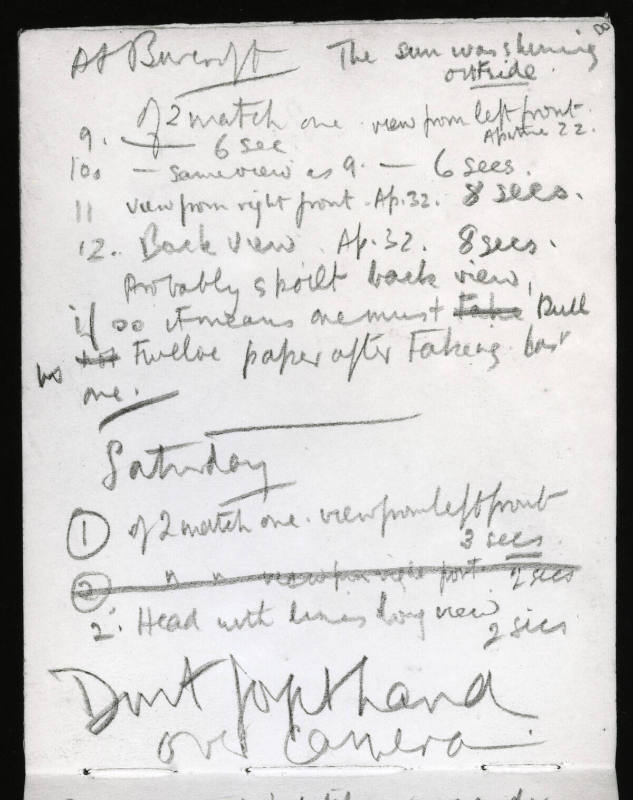 8
At Burcroft The sun was shining
outside.
9. of 2 match one view from left front.
6 sec Aperture 22.
10. — same view as 9. — 6 secs.
11 view from right front. Ap. 32. 8 secs.
12. Back view. Ap. 32. 8 secs.
Probably spoilt back view,
if so it means one must take Pull
no twelve paper after taking last
one.
Saturday
1 of 2 match one. view from left front
3 secs
2 " " view from right 2 secs
2. Head with lines long view
2 secs
Dont forget hand
over camera